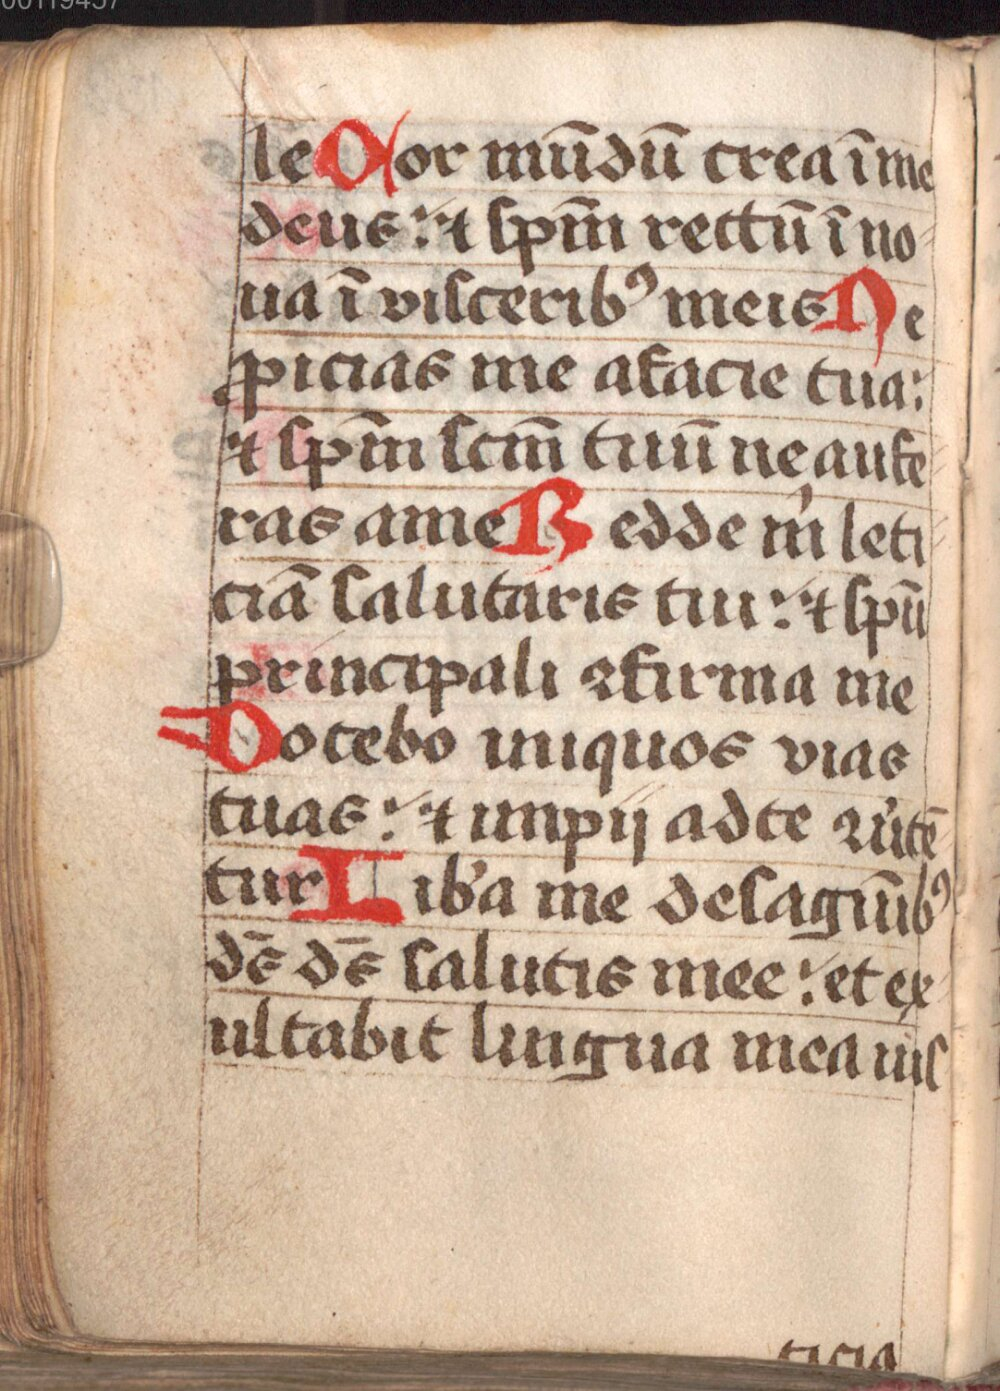 00119457
le Cor mūdū crea ī me
deus: ⁊ sp̄m rectū īno
ua ī viscerib⁹ meis Ne
ꝓicias me afacie tua:
⁊ sp̄m sc̄m tuū ne aufe
ras ame Redde m̍ leti
ciā salutaris tui: ⁊ sp̄u
principali ꝯfirma me
Docebo iniquos vias
tuas: ⁊ impij adte ꝯũtē
tur Lib̾a me desaguīb⁹
dē̄s dē̄s salutis mee: et ex
ultabit lingua mea ius
ticia